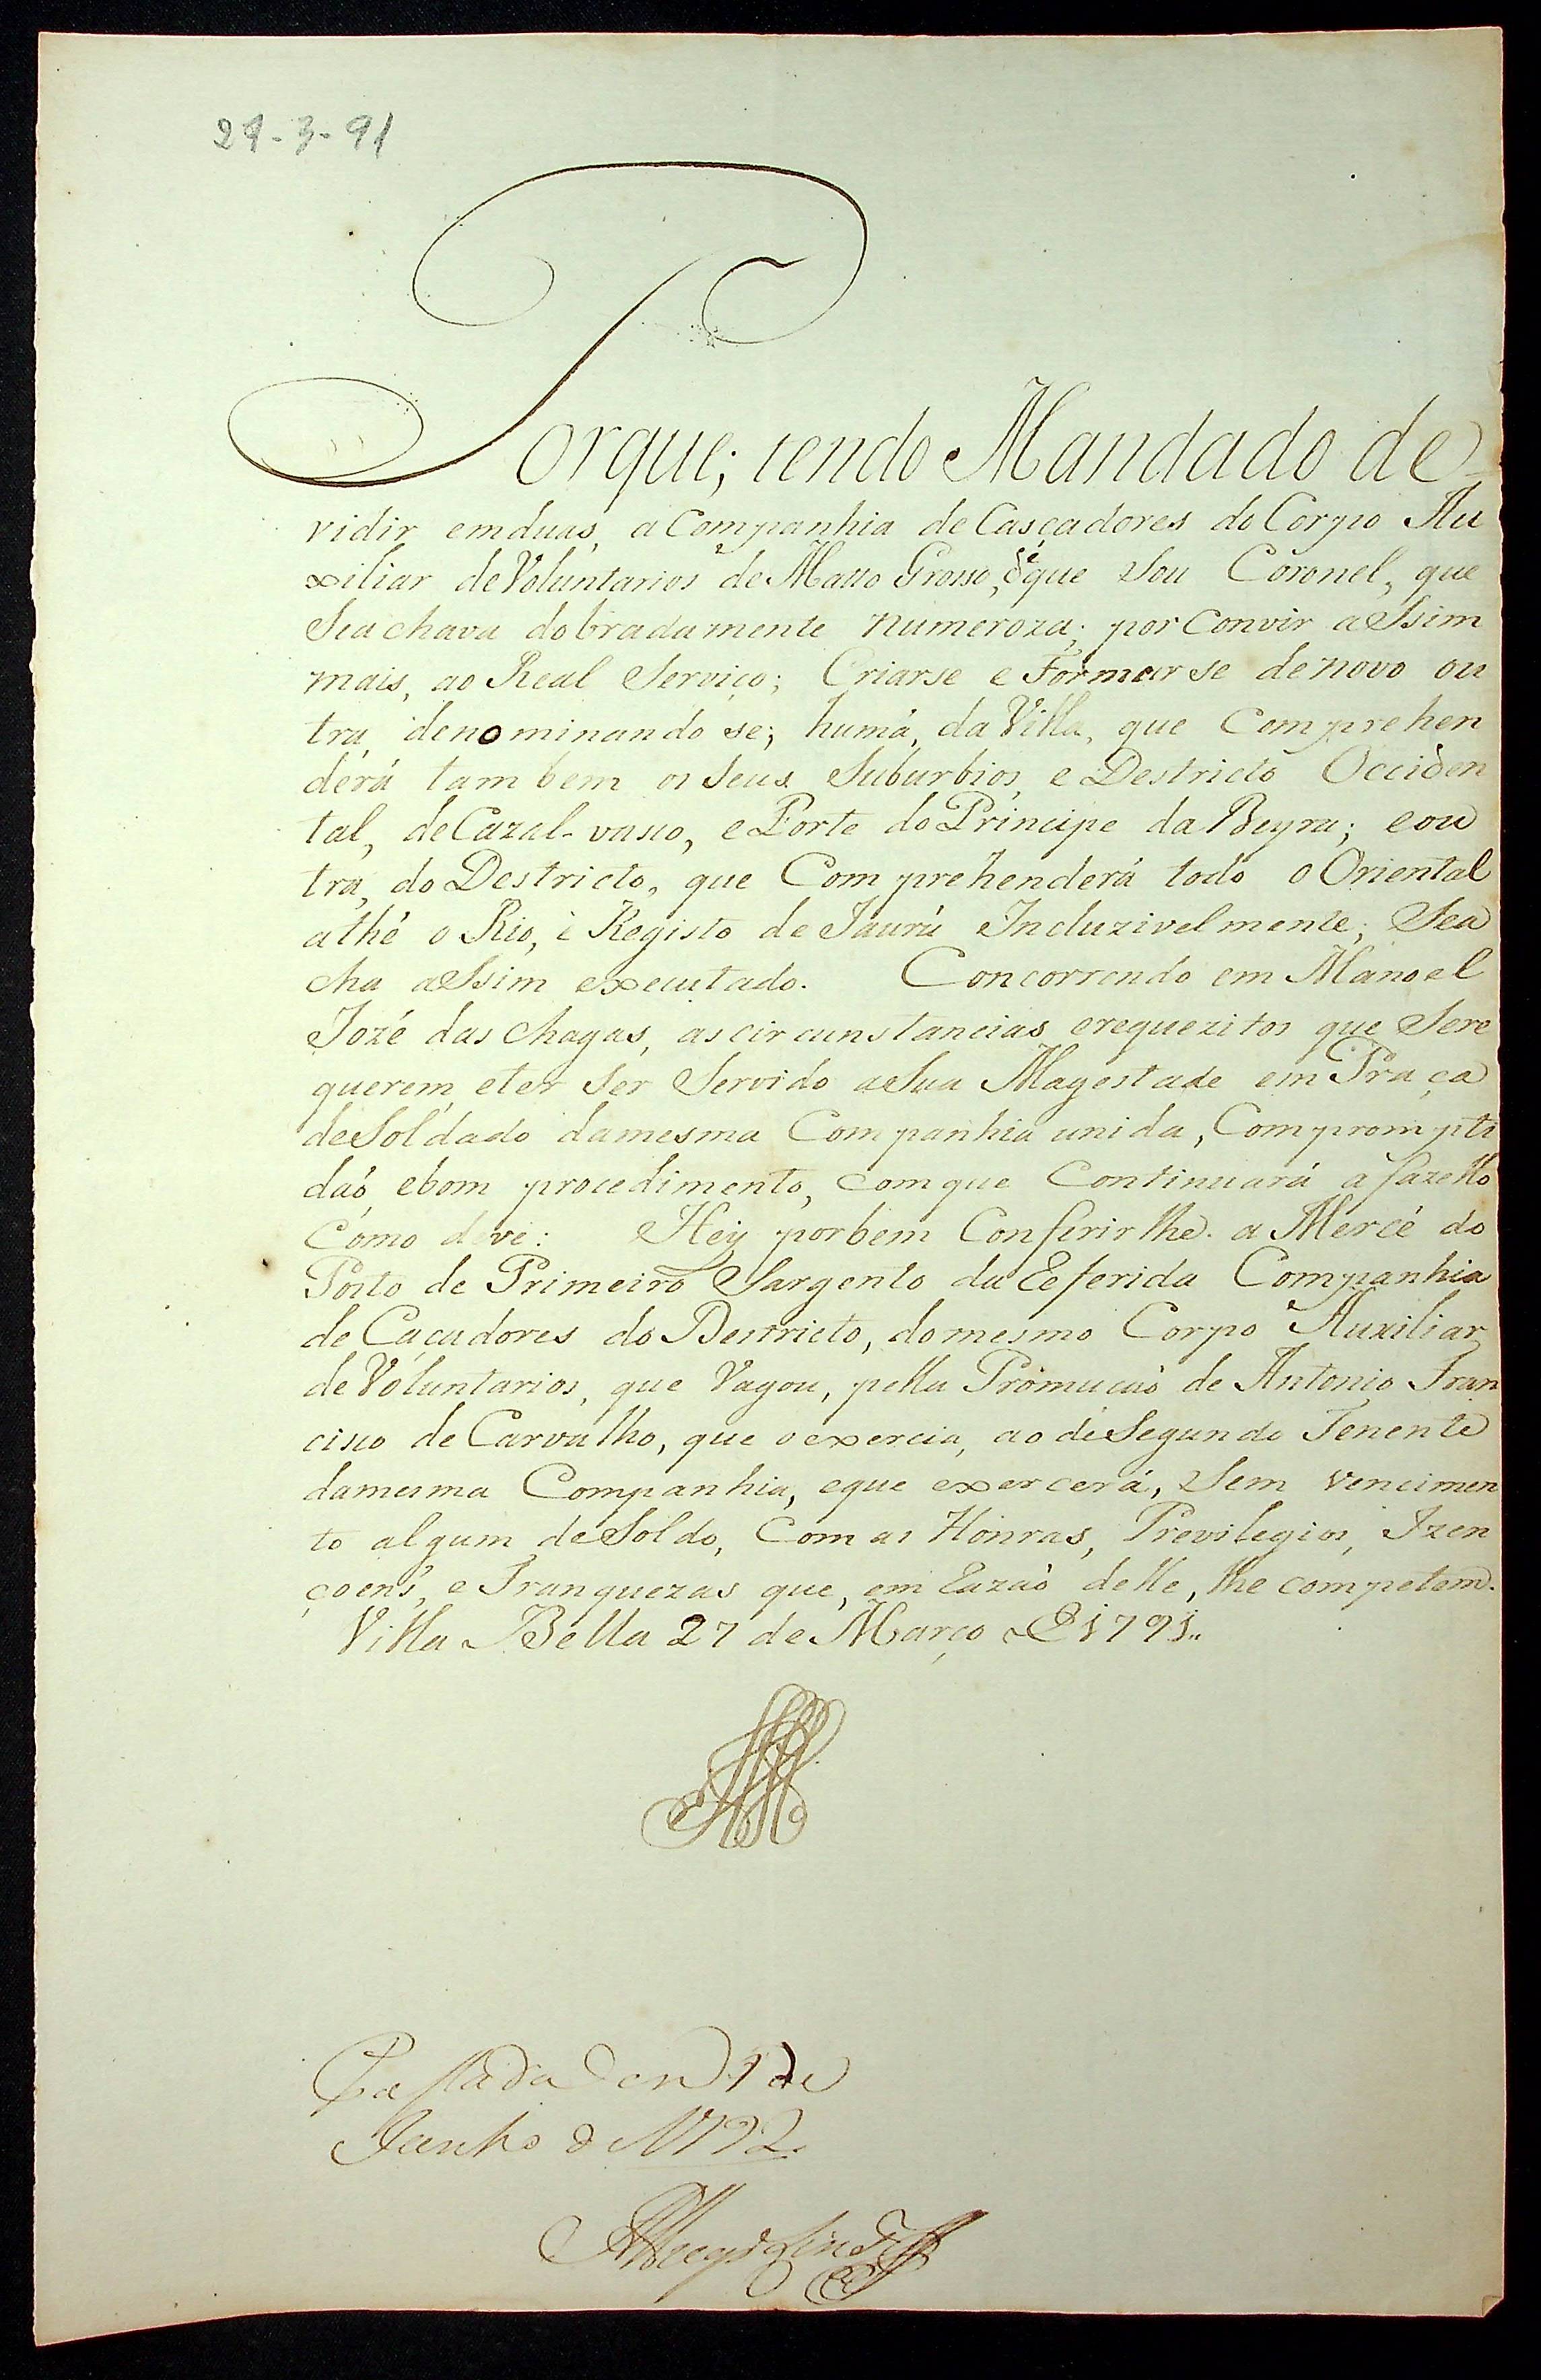 27-3-91
Porque; tendo Mandado de
vidir emduas, a Companhia de Cascadores do Corpo Au
xiliar deVoluntarios de Matto Grosso, de que Sou Coronel, que
Seachava dobradamente numeroza; por Convir aSsim
mais, ao Real Serviço; Criarse e Formarse denovo ou
tra, denominandose; humá, da Villa, que Comprehen
derá tambem os Seus Suburbios, e Destricto Occiden
tal, deCazal-vasco, e Forte do Principe da Beyra; eou
tra, do Destricto, que Comprehenderá todo o Oriental
athé o Rio, e Registo de Jaurú Incluzivelmente; Sea
cha aSsim executado. Concorrendo em Manoel
Jozé das Chagas, ascircunstancias, erequezitos que Sere
querem, eter Ser Servido aSua Magestade em Praça
deSoldado damesma Companhia unida, Comprompti
daó, ebom procedimento, comque Continuará a fazello
Como deve: Hey porbem Conferirlhe a Mercé do
Posto de Primeiro Sargento da Referida Companhia
de Caçadores do Destricto, domesmo Corpo Auxiliar
deVoluntarios, que Vagou, pella Promuçaó de Antonio Fran
cisco de Carvalho, que oexercia, ao deSegundo Tenente
damesma Companhia, eque exercerá, Sem vencimen
to algum deSoldo, Com as Honras, Previlegios, Izen
çoens, e Franquezas que, em Razaó delle, lhe competem.
Villa Bella 27 de Março de 1791..
Passada em 1 de
Junho de 1792.